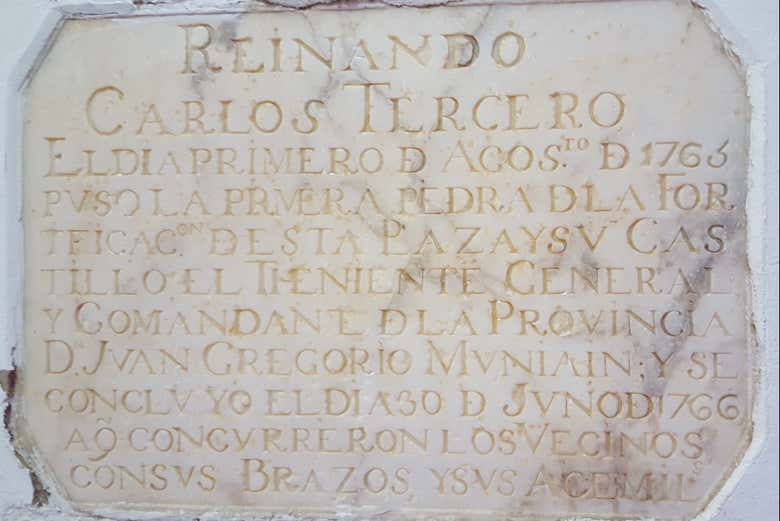 REINANDO
CARLOS TERCERO
EL DIA PRIMERO D AGOS.TO D 1765
PVSO LA PRMERA PEDRA DLA FOR
TFICAC.ON DESTA PLAZA Y SV CAS
TILLO EL THENIENTE GENERAL
Y COMANDANTE DLA PROVINCIA
D. JVAN GREGORIO MVNIAIN; Y SE
CONCLVYO EL DIA 30 D JVNO D 1766
A Q̃ CONCVRRERON LOS VECINOS
CON SVS BRAZOS, Y SVS ACEMILS